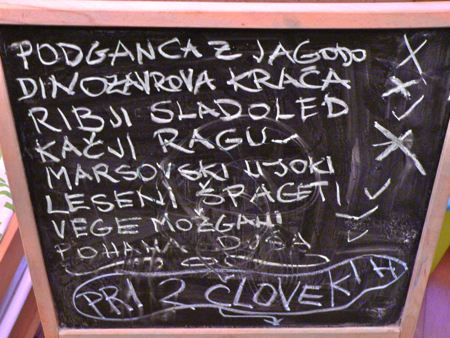 PODGANCA Z JAGODO
DINOZAVROVA KRAČA
RIBJI SLADOLED
KAČJI RAGU
MARSOVSKI NJOKI
LESENI ŠPAGETI
VEGE MOŽGANI
POHANA
PRI 2 ČLOVEKIH